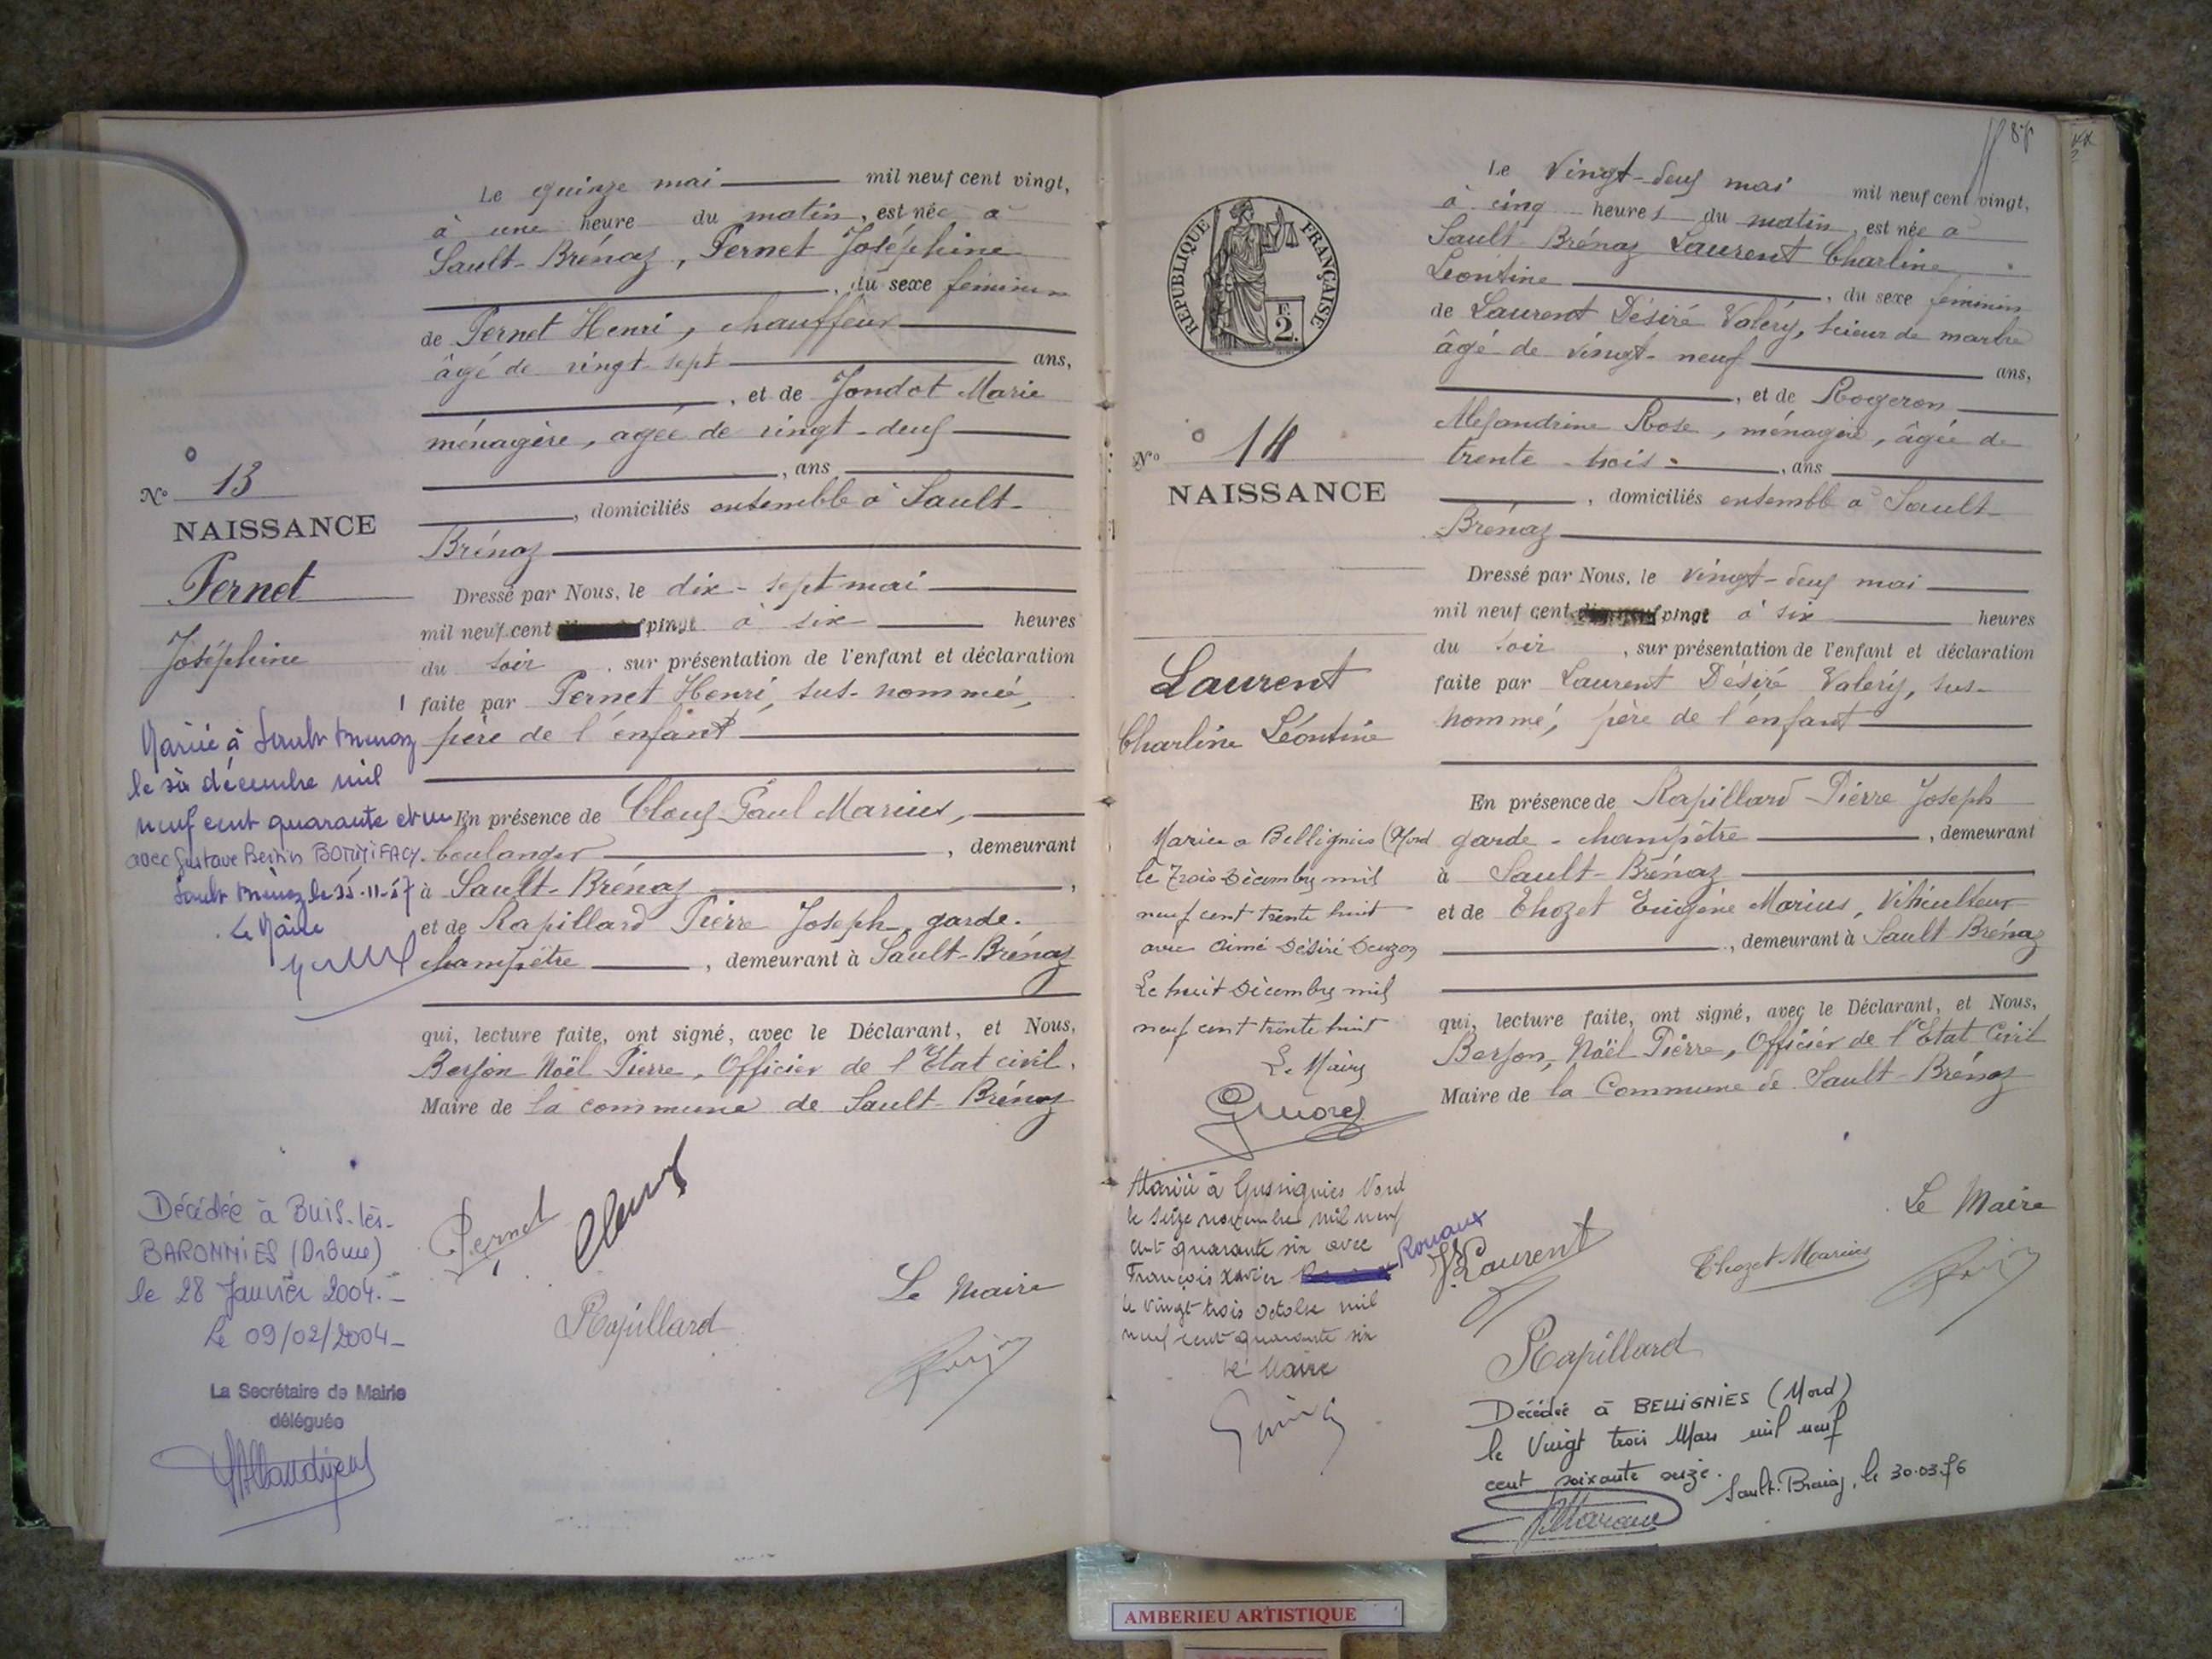 Le quinze mai mil neuf cent vingt,
à une heure du matin, est née à
Sault-Brénaz, Pernet Joséphine
, du sexe féminin
de Pernet Henri, chauffeur
âgé de vingt-sept ans,
, et de Jondot Marie
ménagère, agée de vingt-deux
, ans
, domiciliés ensemble à Sault-
Brénaz
Dressé par Nous, le dix-sept mai
mil neuf cent vingt à six heures
du soir, sur présentation de l'enfant et déclaration
faite par Pernet Henri, sus-nommé,
père de l'enfant
En présence de Paul Marius,
boulanger, demeurant
à Sault-Brénaz,
et de Rapillard Pierre Joseph, garde-
champêtre, demeurant à Sault-Brénaz
qui, lecture faite, ont signé, avec le Déclarant, et Nous,
Berjon Noël Pierre, Officier de l'Etat civil,
Maire de la commune de Sault-Brénaz
Pernet
Rapillard
Le Maire
N° 13
NAISSANCE
Pernet
Joséphine
Mariée à Sault Brenaz
le six décembre mil
neuf cent quarante et un
avec Gustave BONNIFACY
Sault Brénaz le
Le Maire
Décédée à BUIS-lès-
BARONNIES (Drôme)
le 28 Janvier 2004.-
Le 09/02/2004-
La Secrétaire de Mairie
déléguée
RÉPUBLIQUE FRANÇAISE
2
N° 14
NAISSANCE
Laurent
Charline Léontine
Mariée a Bellignies (Nord
le Trois Décembre mil
neuf cent trente huit
avec Aimé Désiré
Le huit Décembre mil
neuf cent trente huit
Le Maire
Mariée à Gussignies Nord
le seize novembre mil neuf
cent quarante six avec
François Xavier Rouaux
le vingt trois octobre mil
neuf cent quarante six
le Maire
Le Vingt-deux mai mil neuf cent vingt,
à cinq heures du matin, est née à
Sault-Brénaz Laurent Charline
Léontine, du sexe féminin
de Laurent Désiré Valéry, scieur de marbre
âgé de vingt-neuf ans,
, et de Rogeron
Alexandrine Rose, ménagère, âgée de
trente-trois, ans
, domiciliés ensemble à Sault-
Brénaz
Dressé par Nous, le vingt-deux mai
mil neuf cent vingt à six heures
du soir, sur présentation de l'enfant et déclaration
faite par Laurent Désiré Valéry, sus-
nommé, père de l'enfant
En présence de Rapillard Pierre Joseph
garde-champêtre, demeurant
à Sault-Brénaz
et de Thozet Eugène Marius, Viticulteur
, demeurant à Sault-Brénaz
qui, lecture faite, ont signé, avec le Déclarant, et Nous,
Berjon, Noël Pierre, Officier de l'Etat Civil
Maire de la Commune de Sault-Brénaz
Le Maire
Laurent
Thozet Marius
Rapillard
Décédée à BELLIGNIES (Nord)
le Vingt trois Mars mil neuf
cent soixante seize.
Sault-Brénaz, le 30.03.76
AMBERIEU ARTISTIQUE